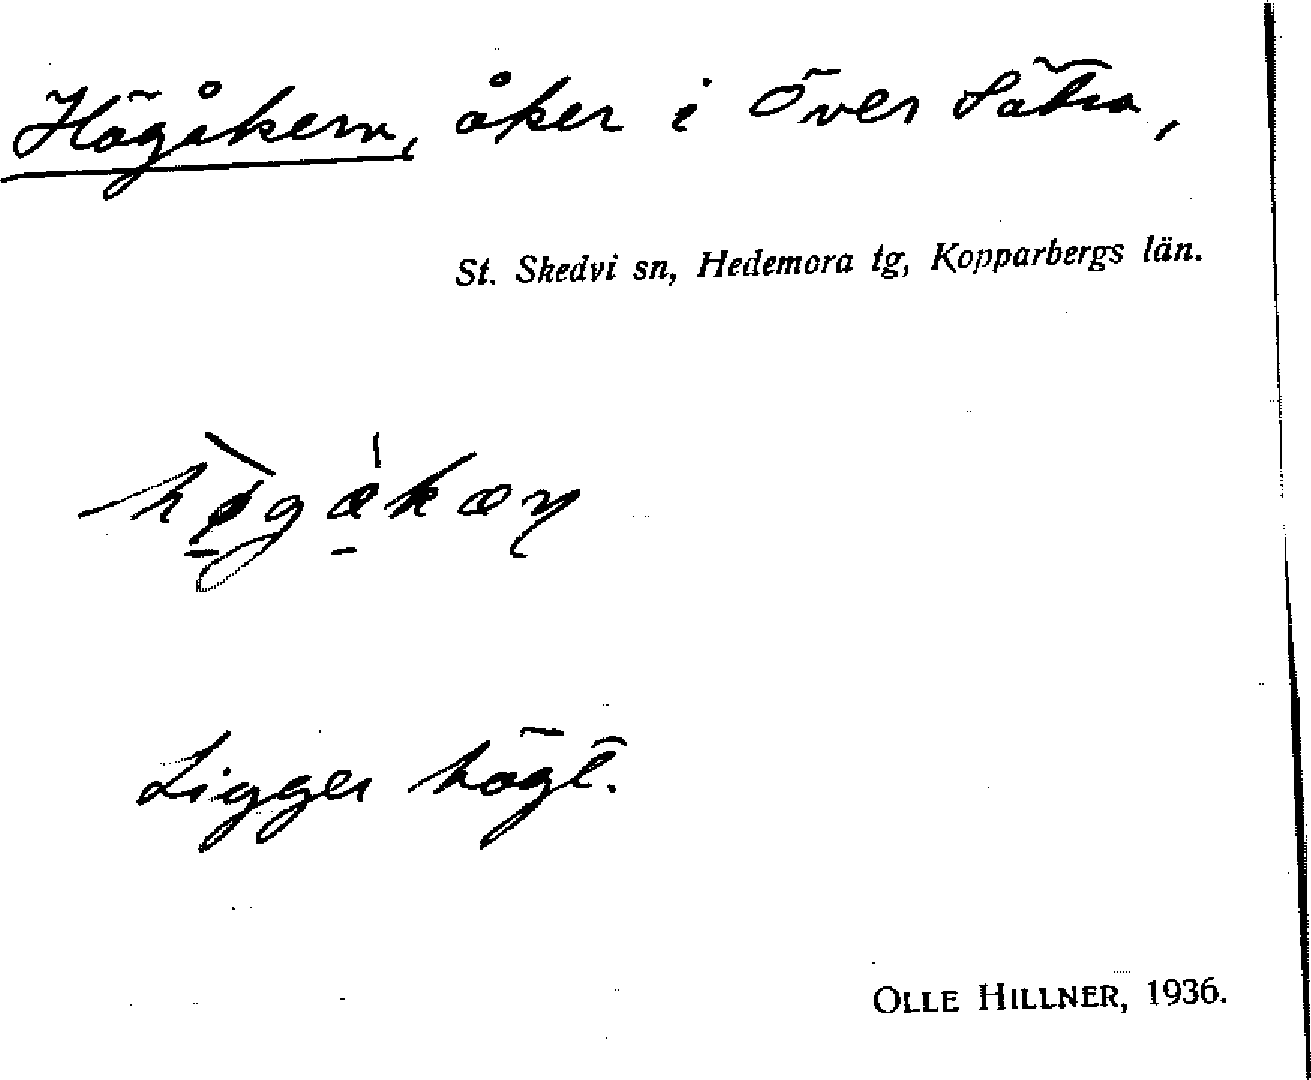 Högåkern, åker i Över Sätra,
St. Skedvi sn, Hedemora tg, Kopparbergs län.
hø̱̀gǻ̱kæɳ
Ligger högt.
OLLE HILLNER, 1936.